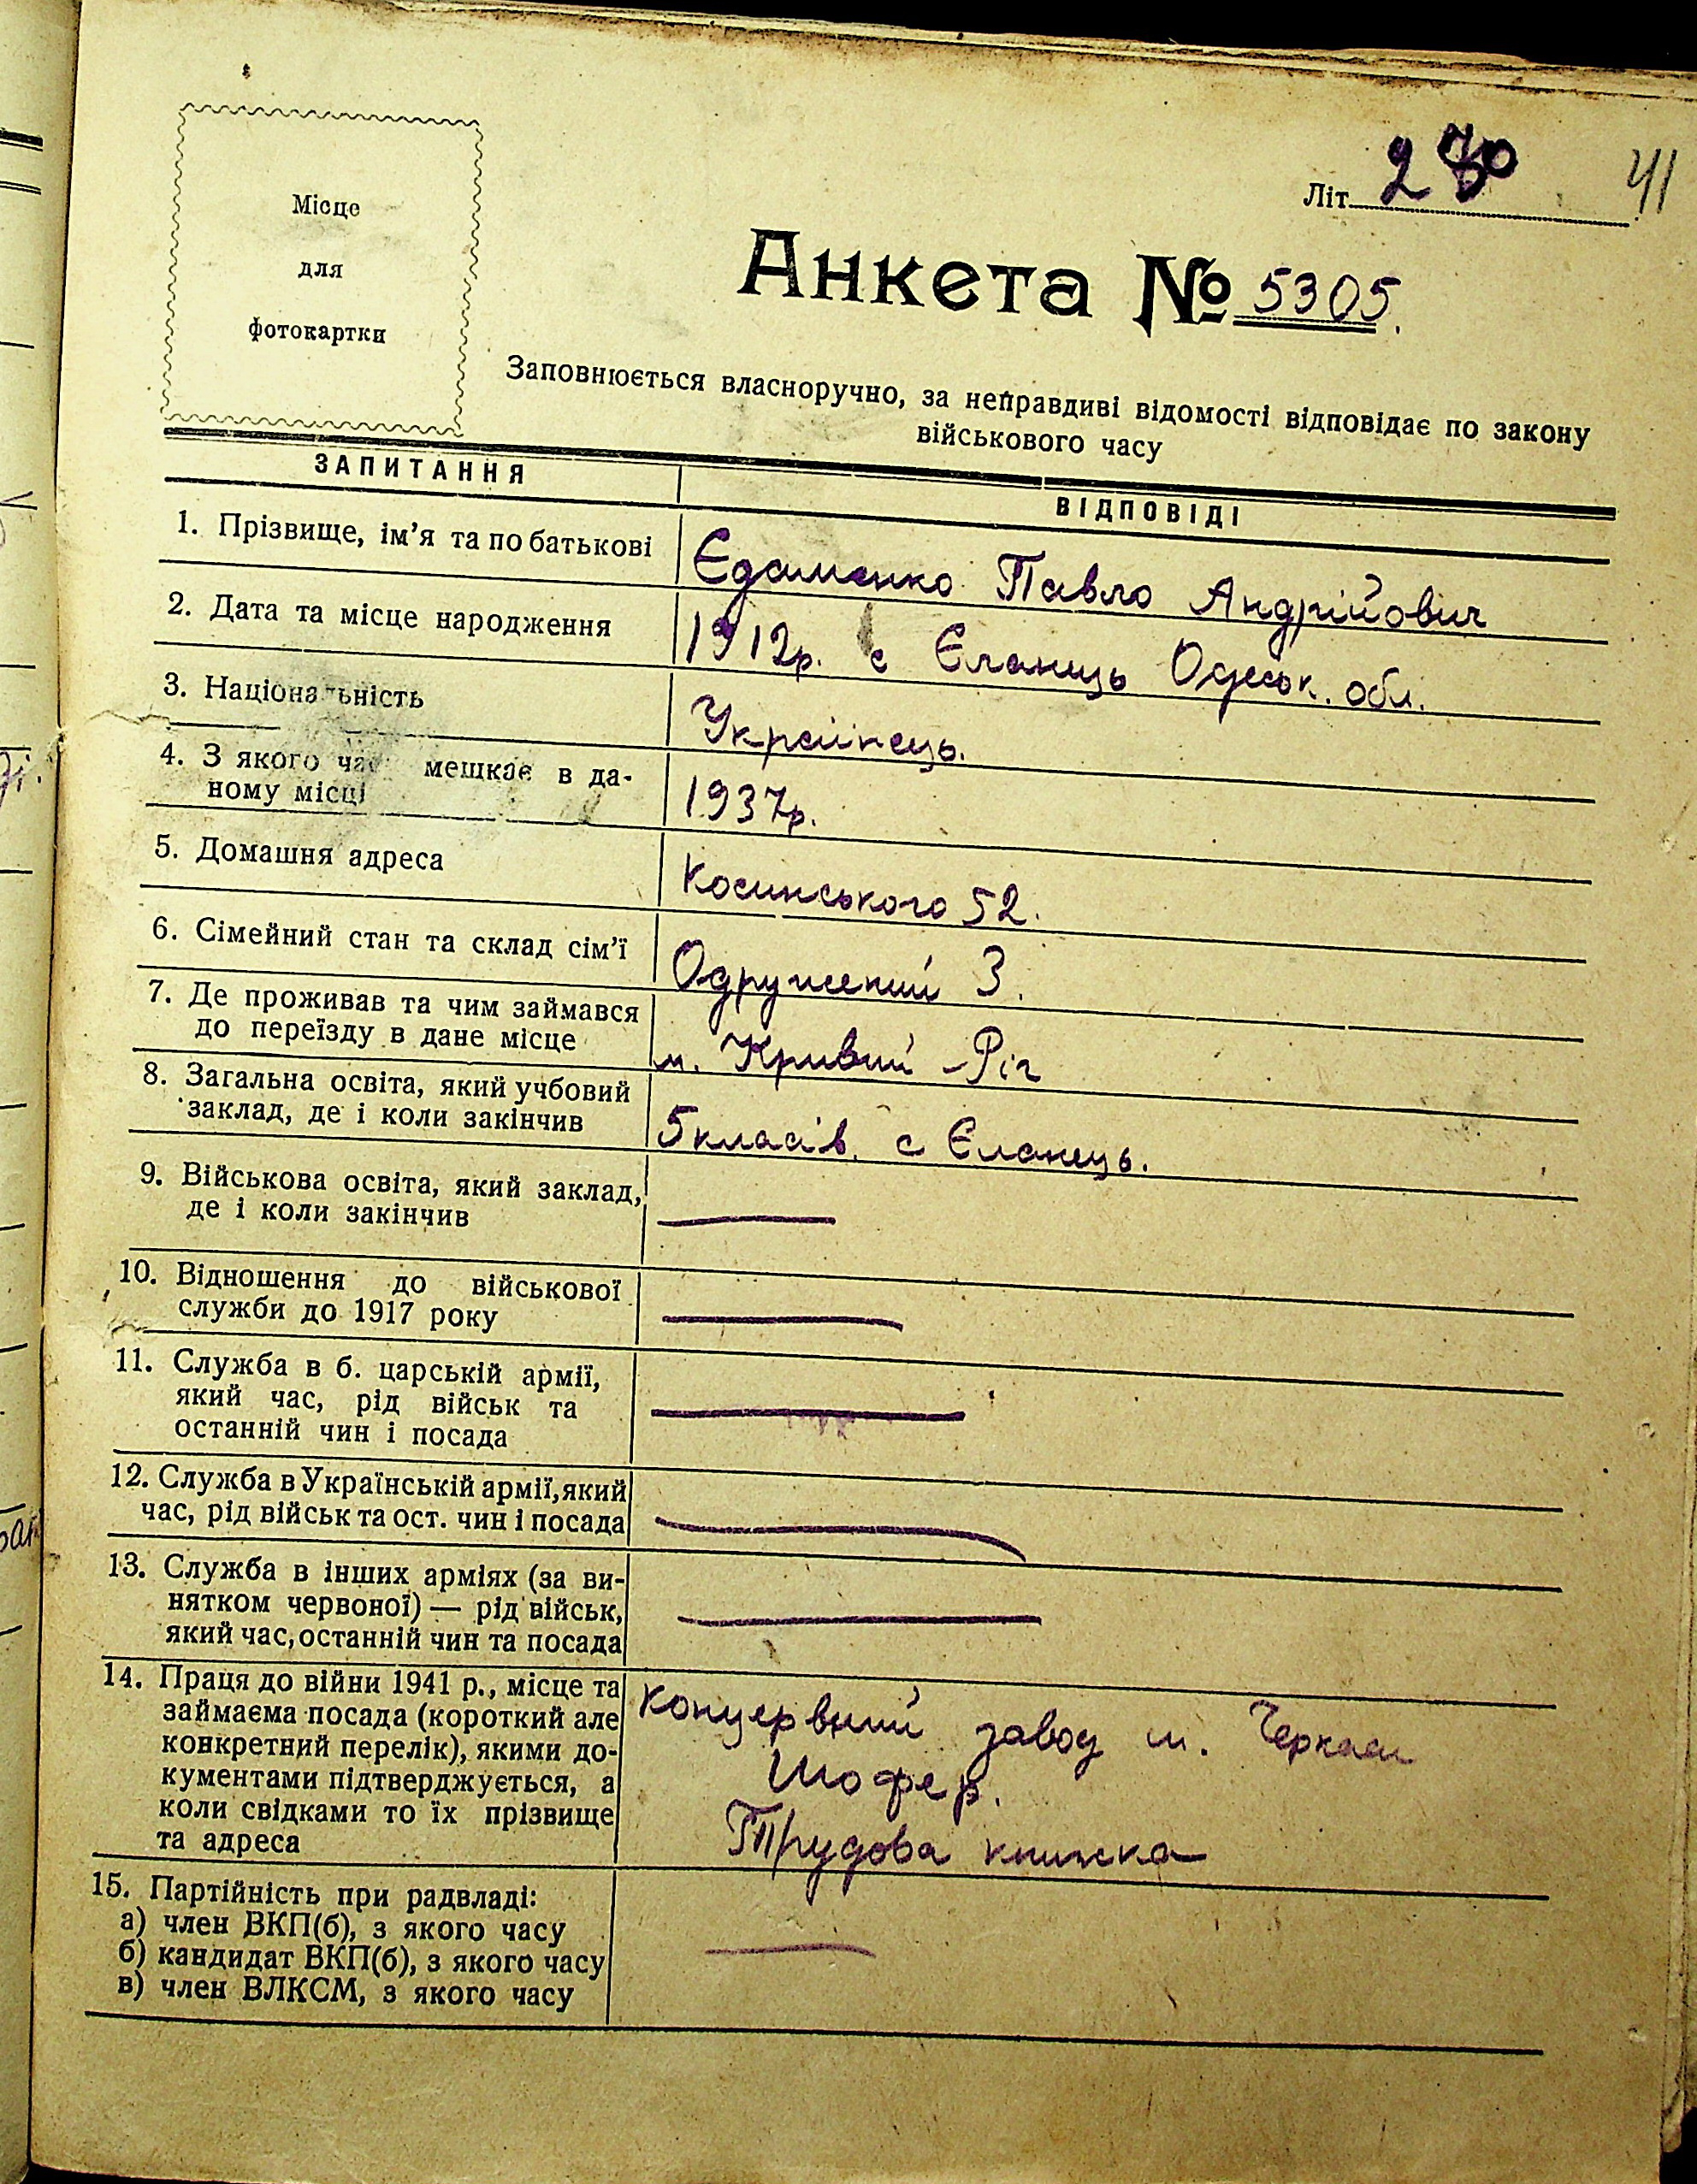 Місце
для
фотокартки
Літ. 41
Анкета № 5305.
Заповнюється власноручно, за неправдиві відомості відповідає по закону
військового часу
ЗАПИТАННЯ ВІДПОВІДІ
1. Прізвище, ім'я та по батькові Єдаменко Павло Андрійович
2. Дата та місце народження 1912р. с Єланець Одеськ. обл.
3. Національність Українець.
4. З якого часу мешкає в да-
ному місці 1937р.
5. Домашня адреса Косинського 52.
6. Сімейний стан та склад сім'ї Одружений 3.
7. Де проживав та чим займався
до переїзду в дане місце м. Кривий-Ріг
8. Загальна освіта, який учбовий
заклад, де і коли закінчив 5 класів. с Єланець.
9. Військова освіта, який заклад,
де і коли закінчив —
10. Відношення до військової
служби до 1917 року —
11. Служба в б. царській армії,
який час, рід військ та
останній чин і посада —
12. Служба в Українській армії, який
час, рід військ та ост. чин і посада —
13. Служба в інших арміях (за ви-
нятком червоної) — рід військ,
який час, останній чин та посада —
14. Праця до війни 1941 р., місце та
займаєма посада (короткий але
конкретний перелік), якими до-
кументами підтверджується, а
коли свідками то їх прізвище
та адреса
концервний завод м. Черкаси
Шофер.
Трудова книжка
15. Партійність при радвладі:
а) член ВКП(б), з якого часу
б) кандидат ВКП(б), з якого часу
в) член ВЛКСМ, з якого часу —